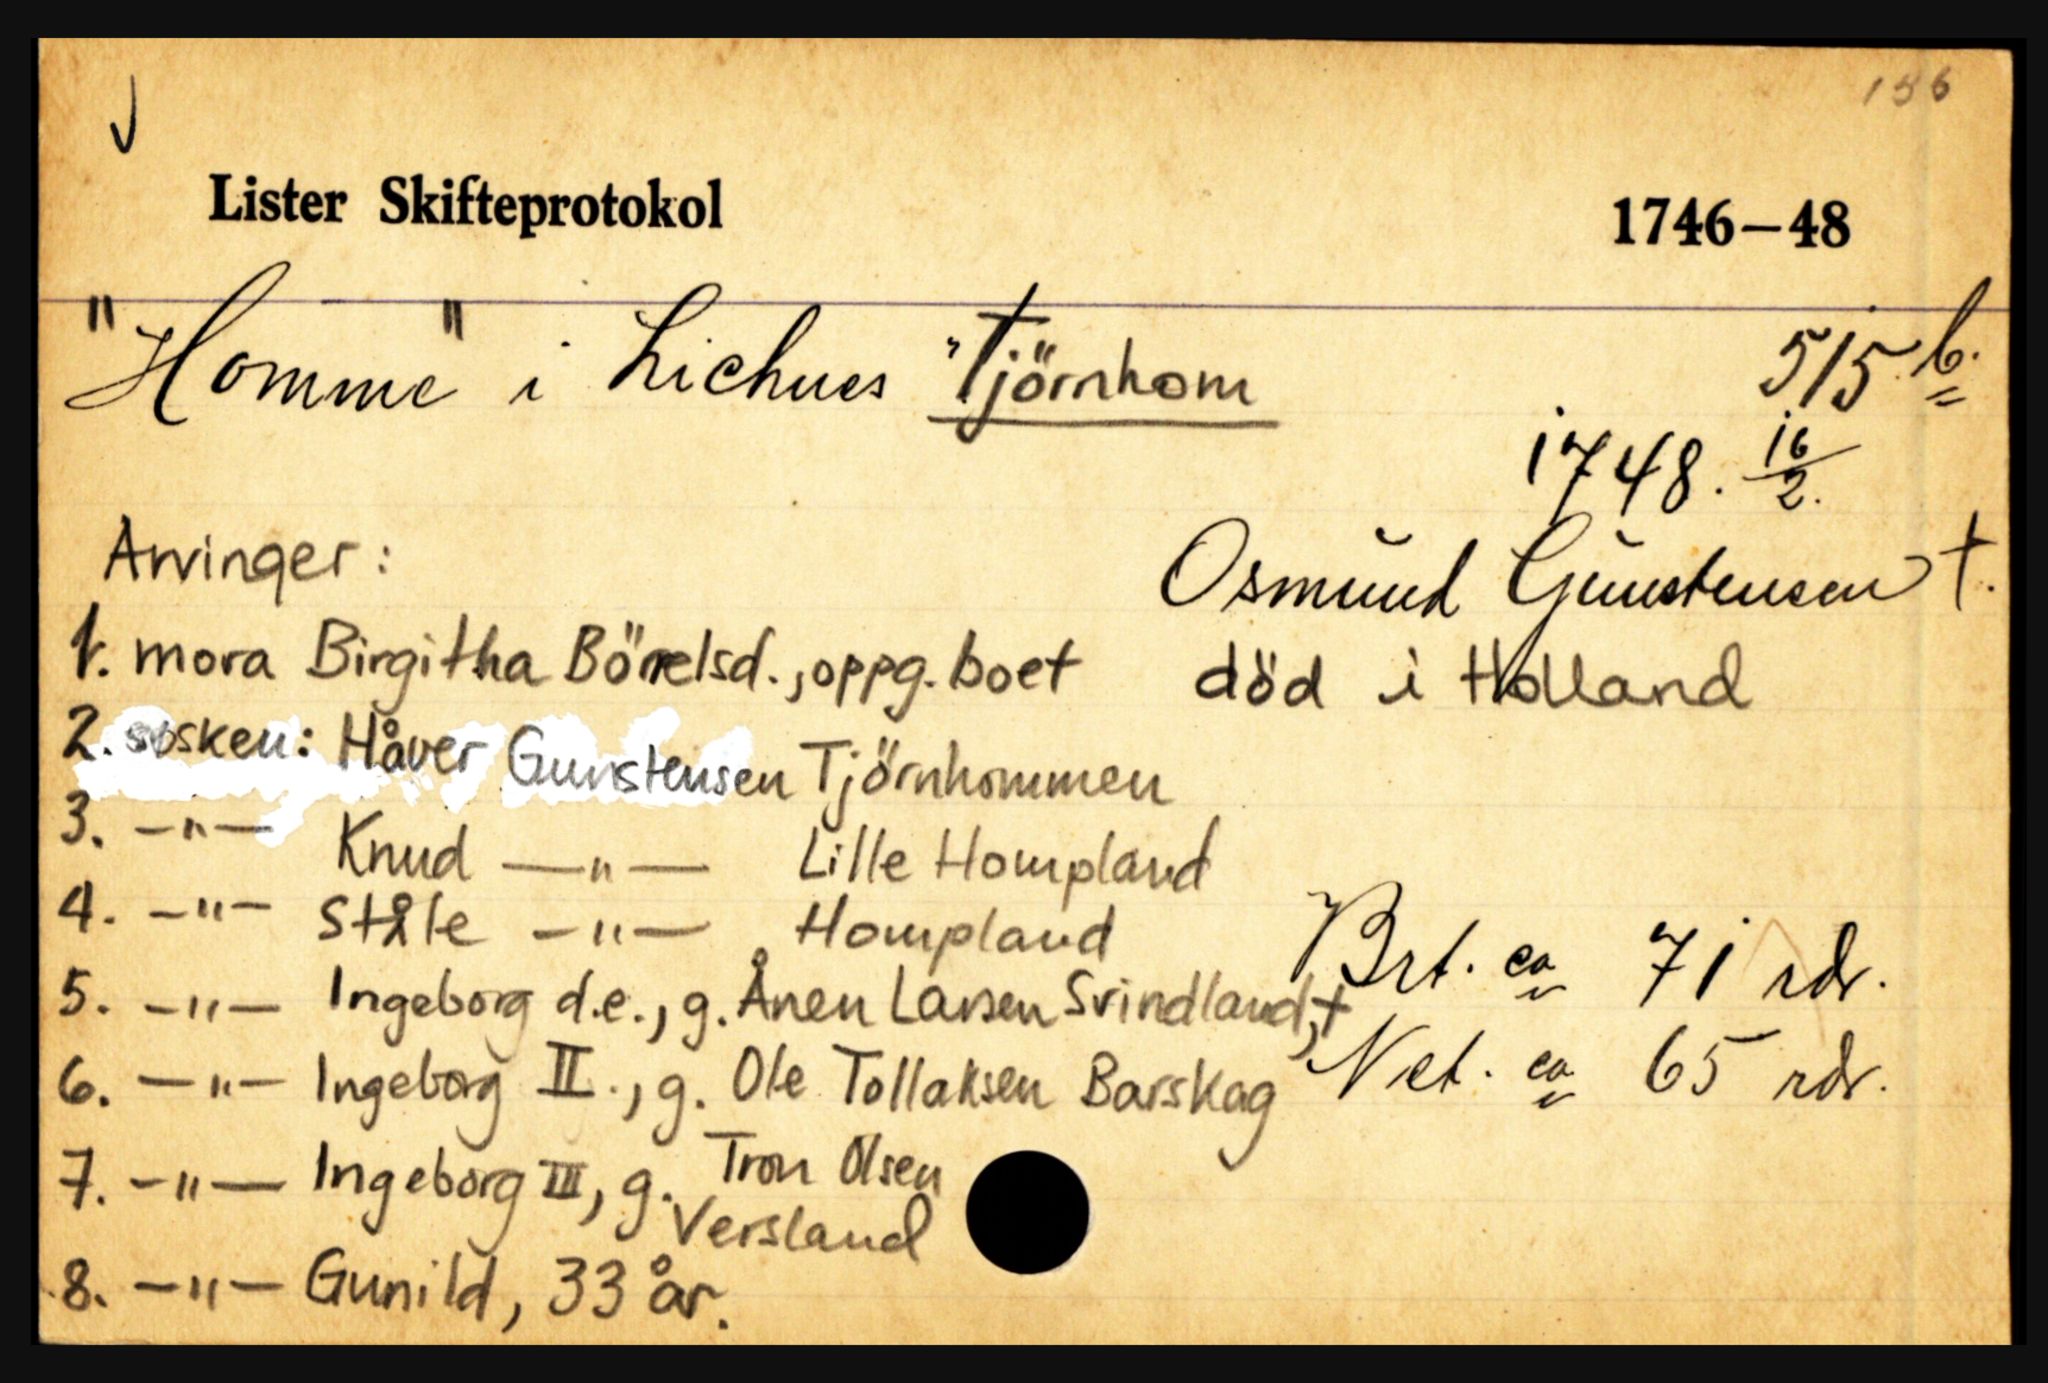 156
Lister Skifteprotokol 1746–48
"Homme" i Liehues "Tjörnhom 515 b.
1748. 16/2.
Osmund Gunstensen †.
död i Holland
Arvinger:
1. mora Birgitha Börrelsd., oppg. boet
2. søsken: Håver Gunstensen Tjörnhommen
3. —"— Knud —"— Lille Hompland
4. —"— Ståle —"— Hompland
5. —"— Ingeborg d.e., g. Ånen Larsen Svindland, †
6. —"— Ingeborg II., g. Ole Tollaksen Barskag
7. —"— Ingeborg III, g. Tron Olsen
Versland
8. —"— Gunild, 33 år.
Brt. ca 71 rdr.
Net. ca 65 rdr.